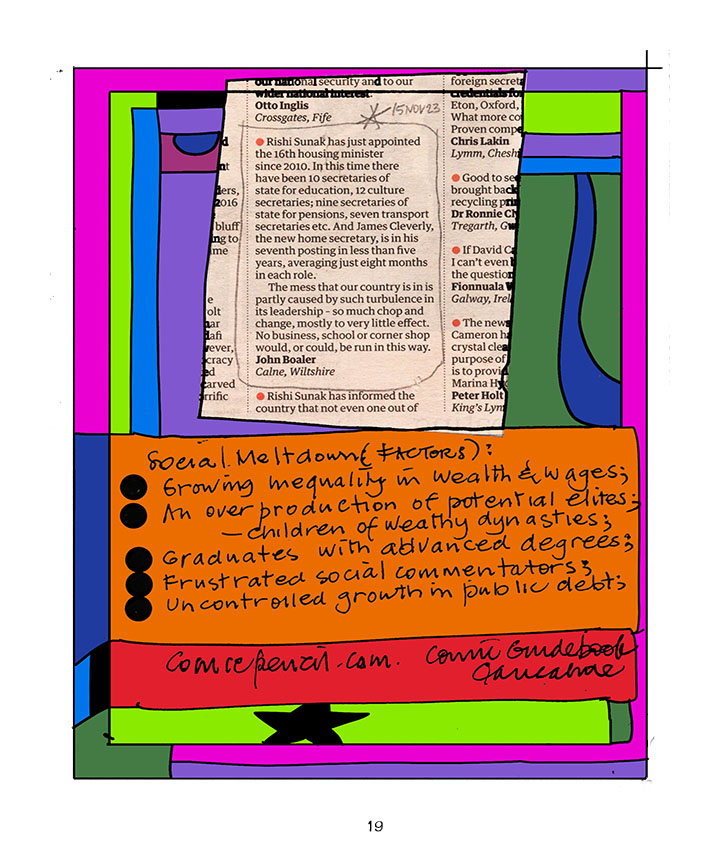 our national security and to our
wider national interest.
Otto Inglis
Crossgates, Fife
15 NOV 23
Rishi Sunak has just appointed
the 16th housing minister
since 2010. In this time there
have been 10 secretaries of
state for education, 12 culture
secretaries; nine secretaries of
state for pensions, seven transport
secretaries etc. And James Cleverly,
the new home secretary, is in his
seventh posting in less than five
years, averaging just eight months
in each role.
The mess that our country is in is
partly caused by such turbulence in
its leadership – so much chop and
change, mostly to very little effect.
No business, school or corner shop
would, or could, be run in this way.
John Boaler
Calne, Wiltshire
Rishi Sunak has informed the
country that not even one out of
d
t
ers,
2016
bluff
ng to
me
e
olt
nar
lafi
ever,
cracy
ed
carved
rrific
foreign secret
credentials fo
Eton, Oxford,
What more co
Proven compe
Chris Lakin
Lymm, Chesh
Good to se
brought back
recycling pri
Dr Ronnie C
Tregarth, Gw
If David Ca
I can't even
the question
Fionnuala W
Galway, Irel
The news
Cameron ha
crystal clea
purpose of
is to provid
Marina Hy
Peter Holt
King's Lyn
Social Meltdown (FACTORS):
Growing inequality in wealth & wages;
An over production of potential elites;
– children of weathy dynasties;
Graduates with advanced degrees;
Frustrated social commentators;
Uncontrolled growth in public debt;
comicepencil.com. Comic Guidebook
19